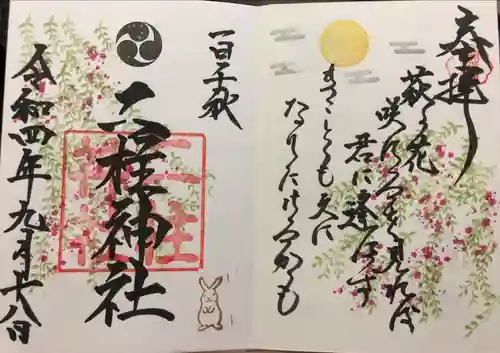 奉拝
萩の花
咲けるを見れば
君に逢はず
まことも久に
なりにけるかも
一日千秋
二柱神社
令和四年九月十八日